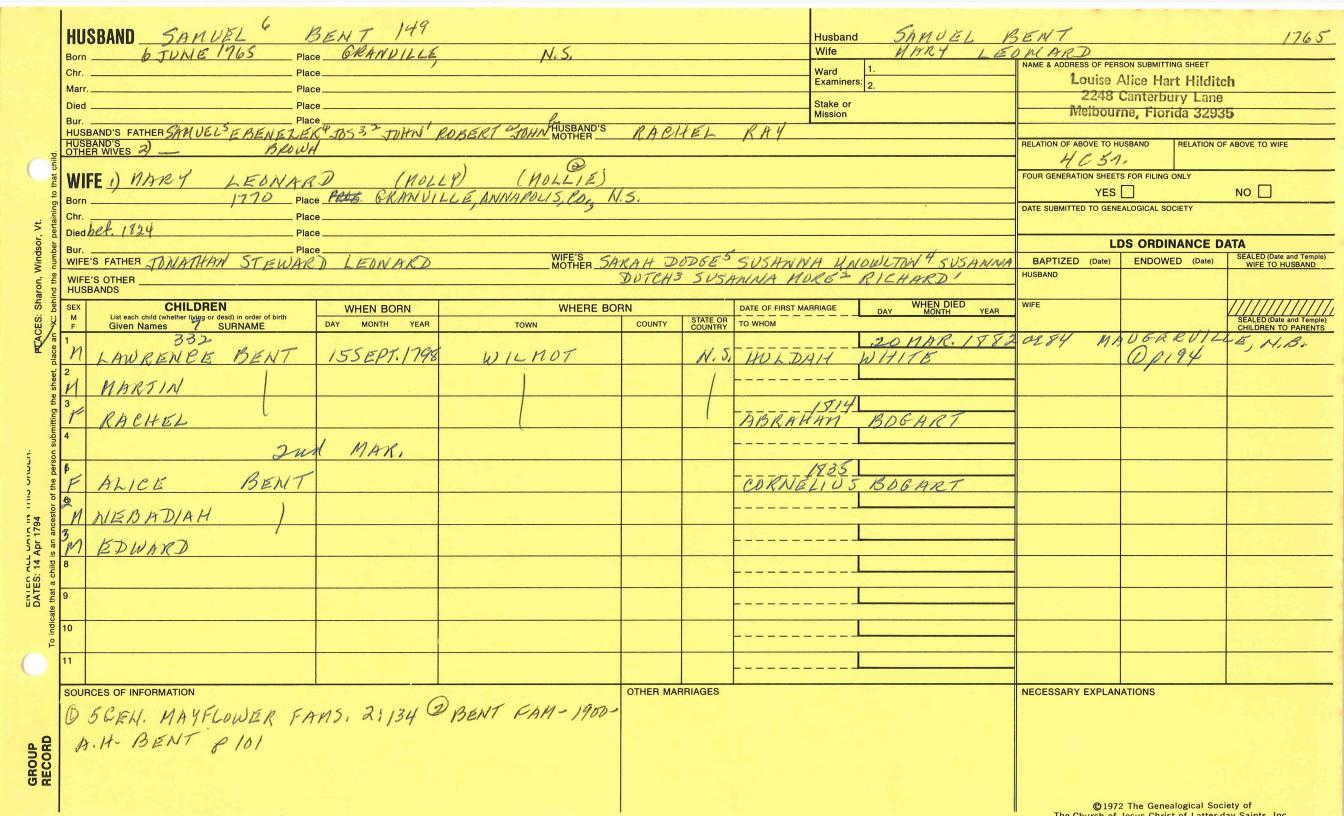 HUSBAND SAMUEL 6 BENT 149
Born 6 JUNE 1765 Place GRANVILLE, N.S.
Chr. Place
Marr. Place
Died Place
Bur. Place
HUSBAND'S FATHER SAMUEL5 EBENEZER4 JOS3,2 JOHN1 ROBERT JOHN HUSBAND'S MOTHER RACHEL RAY
HUSBAND'S OTHER WIVES 2) — BROWN
WIFE 1) MARY LEONARD (MOLLY) (MOLLIE) ②
Born 1770 Place GRANVILLE, ANNAPOLIS, CO, N.S.
Chr. Place
Died bef. 1824 Place
Bur. Place
WIFE'S FATHER JONATHAN STEWARD LEONARD WIFE'S MOTHER SARAH DODGE5 SUSANNA KNOWLTON4 SUSANNA
WIFE'S OTHER HUSBANDS DUTCH3 SUSANNA MORE2 RICHARD1
Husband SAMUEL BENT 1765
Wife MARY LEONARD
Ward Examiners: 1.
2.
Stake or Mission
NAME & ADDRESS OF PERSON SUBMITTING SHEET
Louise Alice Hart Hilditch
2248 Canterbury Lane
Melbourne, Florida 32935
RELATION OF ABOVE TO HUSBAND RELATION OF ABOVE TO WIFE
4C5r.
FOUR GENERATION SHEETS FOR FILING ONLY
YES NO
DATE SUBMITTED TO GENEALOGICAL SOCIETY
LDS ORDINANCE DATA
BAPTIZED (Date) ENDOWED (Date) SEALED (Date and Temple) WIFE TO HUSBAND
HUSBAND
WIFE
SEALED (Date and Temple) CHILDREN TO PARENTS
SEX M F CHILDREN WHEN BORN WHERE BORN DATE OF FIRST MARRIAGE WHEN DIED
List each child (whether living or dead) in order of birth
Given Names 7 SURNAME DAY MONTH YEAR TOWN COUNTY STATE OR COUNTRY TO WHOM DAY MONTH YEAR
1 332 20 MAR. 1882 ae84 MAUGERVILLE, N.B.
M LAWRENCE BENT 15 SEPT. 1798 WILMOT N.S. HULDAH WHITE ① p194
2
M MARTIN
3 1814
F RACHEL ABRAHAM BOGART
4
2nd MAR.
1 1835
F ALICE BENT CORNELIUS BOGART
2
M NEBADIAH
3
M EDWARD
8
9
10
11
SOURCES OF INFORMATION OTHER MARRIAGES NECESSARY EXPLANATIONS
① 5 GEN. MAYFLOWER FAMS. 2:134 ② BENT FAM - 1900 -
A.H. BENT p 101
©1972 The Genealogical Society of
The Church of Jesus Christ of Latter-day Saints, Inc.
GROUP RECORD
ENTER ALL DATA IN THIS ORDER:
DATES: 14 Apr 1794
PLACES: Sharon, Windsor, Vt.
To indicate that a child is an ancestor of the person submitting the sheet, place an X behind the number pertaining to that child.